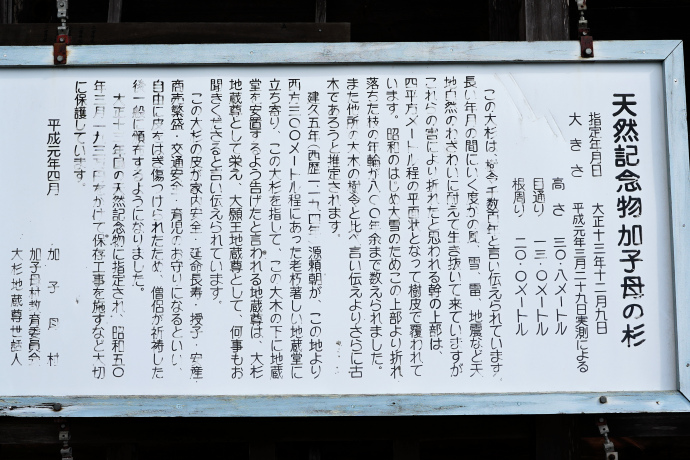 天然記念物加子母の杉
指定年月日　大正十三年十二月九日
大きさ　平成元年三月二十九日実測による
高さ　三〇・八メートル
目通り　一三・〇メートル
根周り　二〇・〇メートル
この大杉は、樹令千数百年と言い伝えられています。
長い年月の間にいく度かの風、雪、雷、地震など天
地自然のわざわいに耐えて生き抜いて来ていますが
これらの害により折れたと思われる幹の上部は、
四平方メートル程の平面状となって樹皮で覆われて
います。昭和のはじめ大雪のためこの上部より折れ
落ちた枝の年輪が八〇〇年余まで数えられました。
また他所の大木の樹令と比べ言い伝えよりさらに古
木であろうと推定されます。
建久五年(西歴一一九四年)源頼朝が、この地より
西方三〇〇メートル程にあった老朽著しい地蔵堂に
立ち寄り、この大杉を指して、この大木の下に地蔵
堂を安置するよう告げたと言われる地蔵尊は、大杉
地蔵尊として栄え、大願王地蔵尊として、何事もお
聞きくださると言い伝えられています。
この大杉の皮が家内安全・延命長寿・授子・安産
商売繁盛・交通安全・育児のお守りになるといい、
自由に皮をはぎ傷つけられたため、僧侶が祈祷した
後一般に頒布するようになりました。
大正十三年国の天然記念物に指定され、昭和五〇
年三月一九三万円をかけて保存工事を施すなど大切
に保護しています。
平成元年四月
加子母村
加子母村教育委員会
大杉地蔵尊世話人